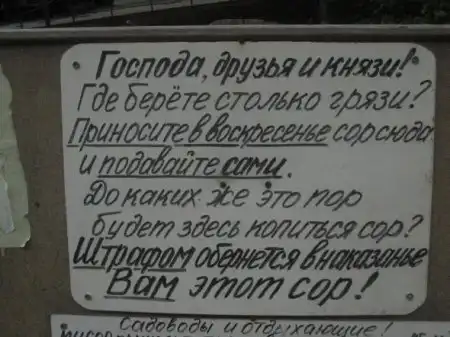 Господа, друзья и князи!
Где берёте столько грязи?
Приносите в воскресенье сор сюда
и подавайте сами.
До каких же это пор
будет здесь копиться сор?
Штрафом обернется в наказанье
Вам этот сор!
Садоводы и отдыхающие!